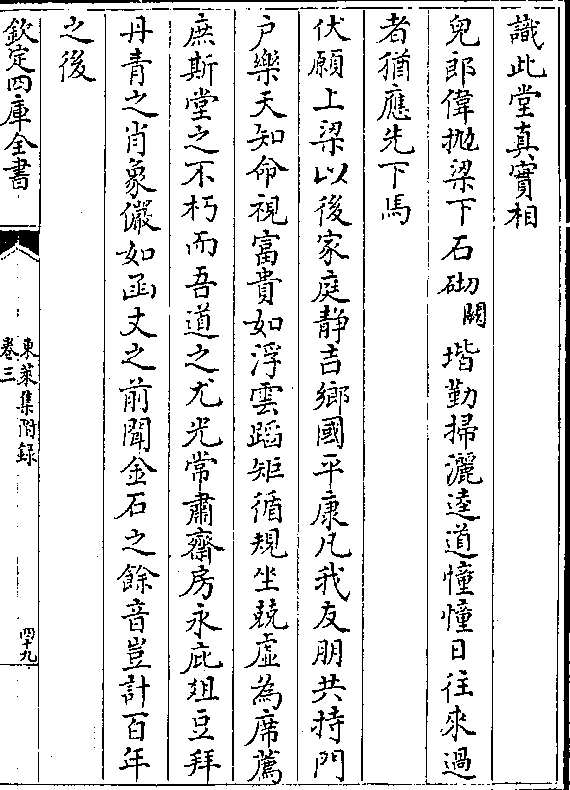 識此堂真實相
兒郎偉抛梁下石砌闕堦勤掃灑逵道憧憧日往來過
者猶應先下馬
伏願上梁以後家庭静吉鄉國平康凡我友朋共持門
户樂天知命視富貴如浮雲蹈矩循規坐兢虛為席薦
庶斯堂之不朽而吾道之尤光常肅齋房永庇俎豆拜
丹青之肖象儼如函丈之前聞金石之餘音豈計百年
之後
欽定四庫全書
東萊集附録
卷三
四十九